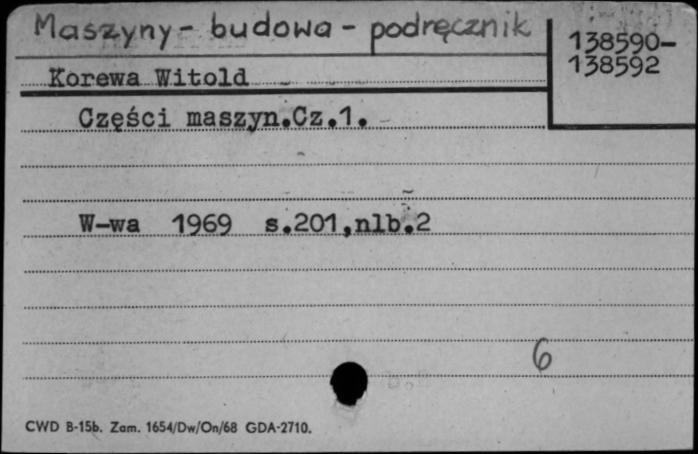 Maszyny - budowa - podręcznik
138590-
138592
Korewa Witold
Części maszyn.Cz.1.
W-wa 1969 s.201,nlb.2
6
CWD B-15b. Zam. 1654/Dw/On/68 GDA-2710.